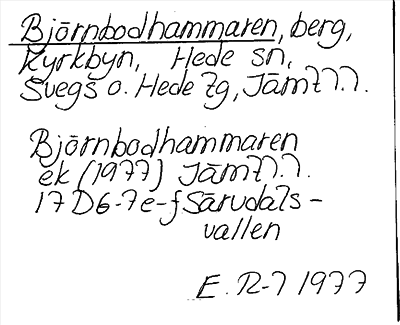 Björnbodhammaren, berg,
Kyrkbyn, Hede sn,
Svegs o. Hede tg, Jämtl.
Björnbodhammaren
ek (1977) Jämtl.
17 D 6-7 e-f Särvdals-
vallen
E. R-1 1977